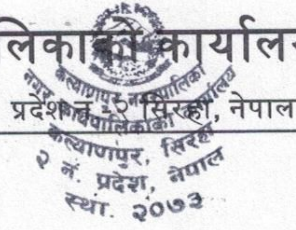 लिकाको कार्यालय
प्रदेश नं. २ सिरहा, नेपाल
कल्याणपुर नगरपालिका
नगर कार्यपालिकाको कार्यालय
कल्याणपुर, सिरहा
२ नं. प्रदेश, नेपाल
स्था. २०७३